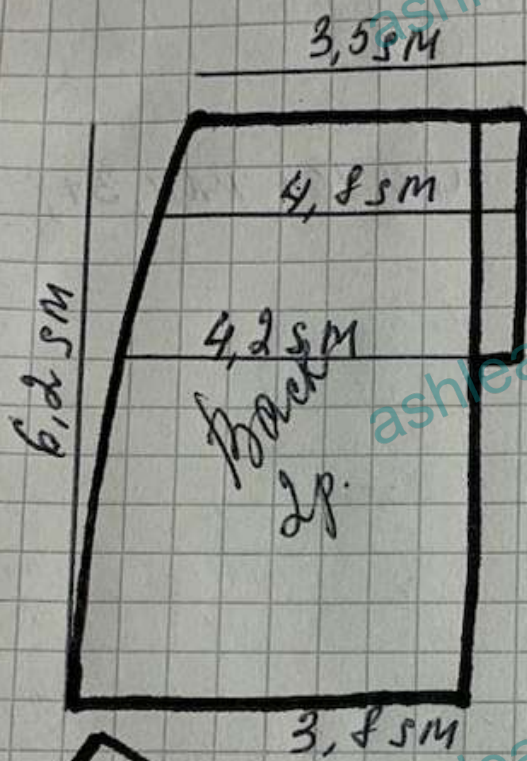 3,5 sm
4,8 sm
4,2 sm
6,2 sm
Back
2p.
3,8 sm
ashlea